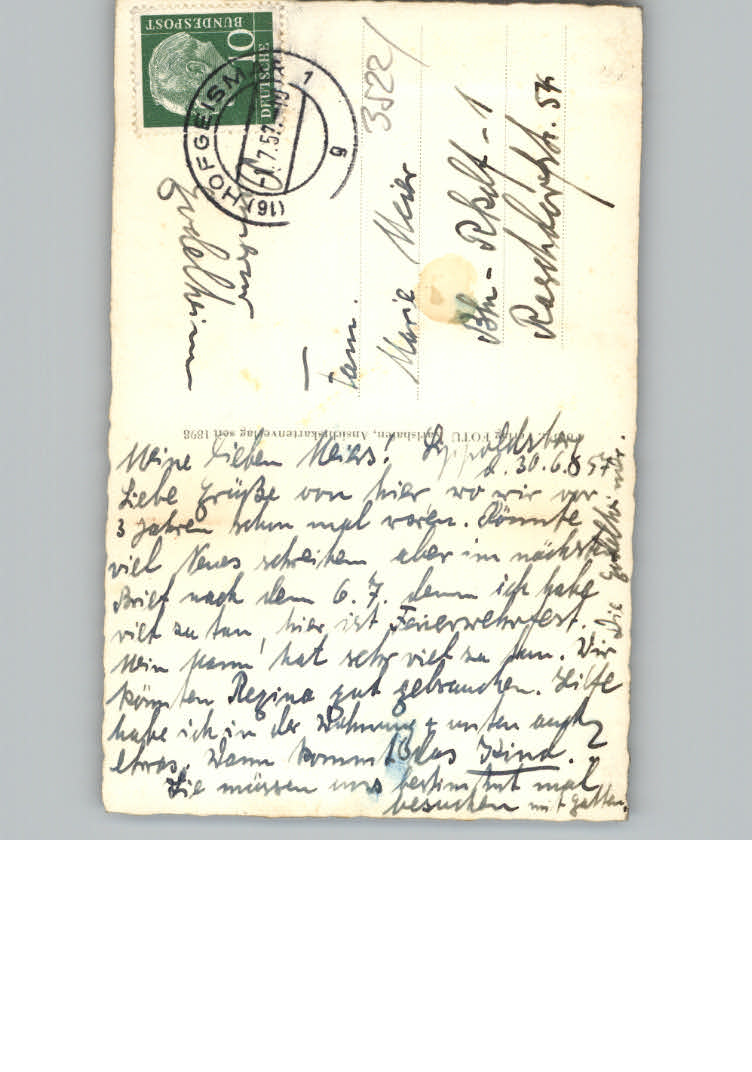 DEUTSCHE
BUNDESPOST
10
(16) HOFGEISMAR 1
-1.7.57
g
3522/
Fam.
Marie Meier
Bln - Rkdf - 1
Raschdorffstr. 54
FOTO Karlshafen, Ansichtskartenverlag seit 1898
Meine lieben Meiers! Lippoldsberg
d. 30.6.57
Liebe Grüße von hier wo wir vor
3 Jahren schon mal waren. Könnte
viel Neues schreiben aber im nächsten
Brief nach dem 6. 7. denn ich habe
viel zu tun, hier ist Feuerwehrfest.
Mein Mann hat sehr viel zu tun. Wir
könnten Regina gut gebrauchen. Hilfe
habe ich in der Wohnung + unten auch
etwas. Wann kommt das Kind?
Sie müssen uns bestimmt mal
besuchen mit Gatten.
Die